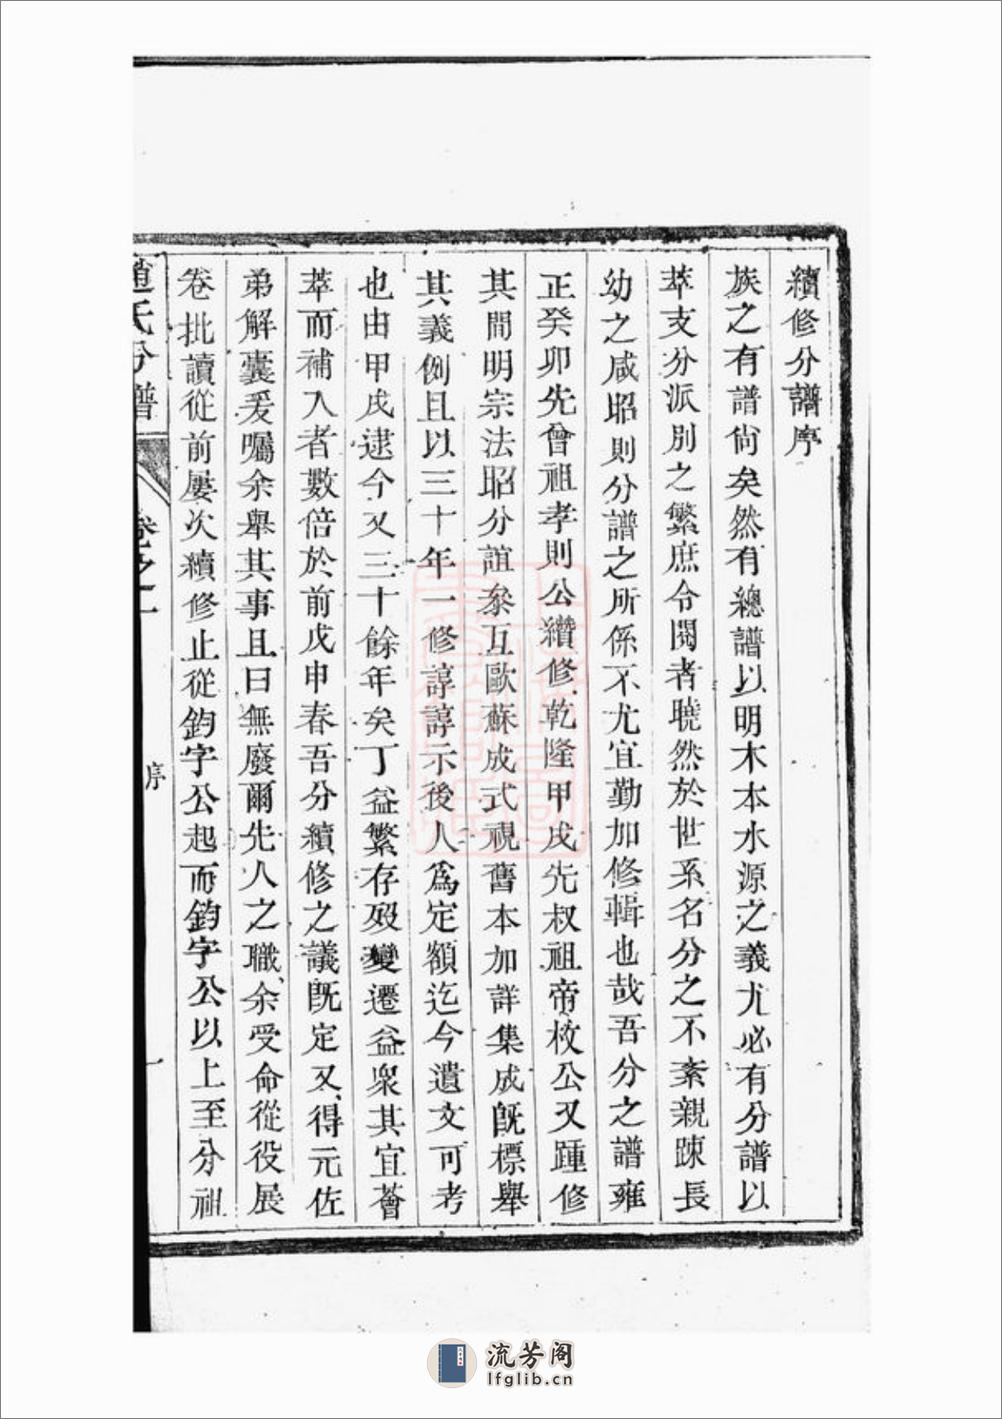 續修分譜序
族之有譜尙矣然有總譜以明木本水源之義尤必有分譜以
萃支分派別之繁庶令閱者曉然於世系名分之不紊親踈長
幼之咸昭則分譜之所係不尤宜勤加修輯也哉吾分之譜雍
正癸卯先曾祖孝則公纘修乾隆甲戌先叔祖帝枚公又踵修
其間明宗法昭分誼叅互歐蘇成式視舊本加詳集成旣標舉
其義例且以三十年一修諄諄示後人爲定額迄今遺文可考
也由甲戌逮今又三十餘年矣丁益繁存歿變遷益衆其宜薈
萃而補入者數倍於前戊申春吾分續修之議旣定又得元佐
弟解囊爰囑余舉其事且曰無廢爾先人之職余受命從役展
卷批讀從前屢次續修止從鈞字公起而鈞字公以上至分祖
趙氏分譜
卷之一
序
一
流芳阁
lfglib.cn